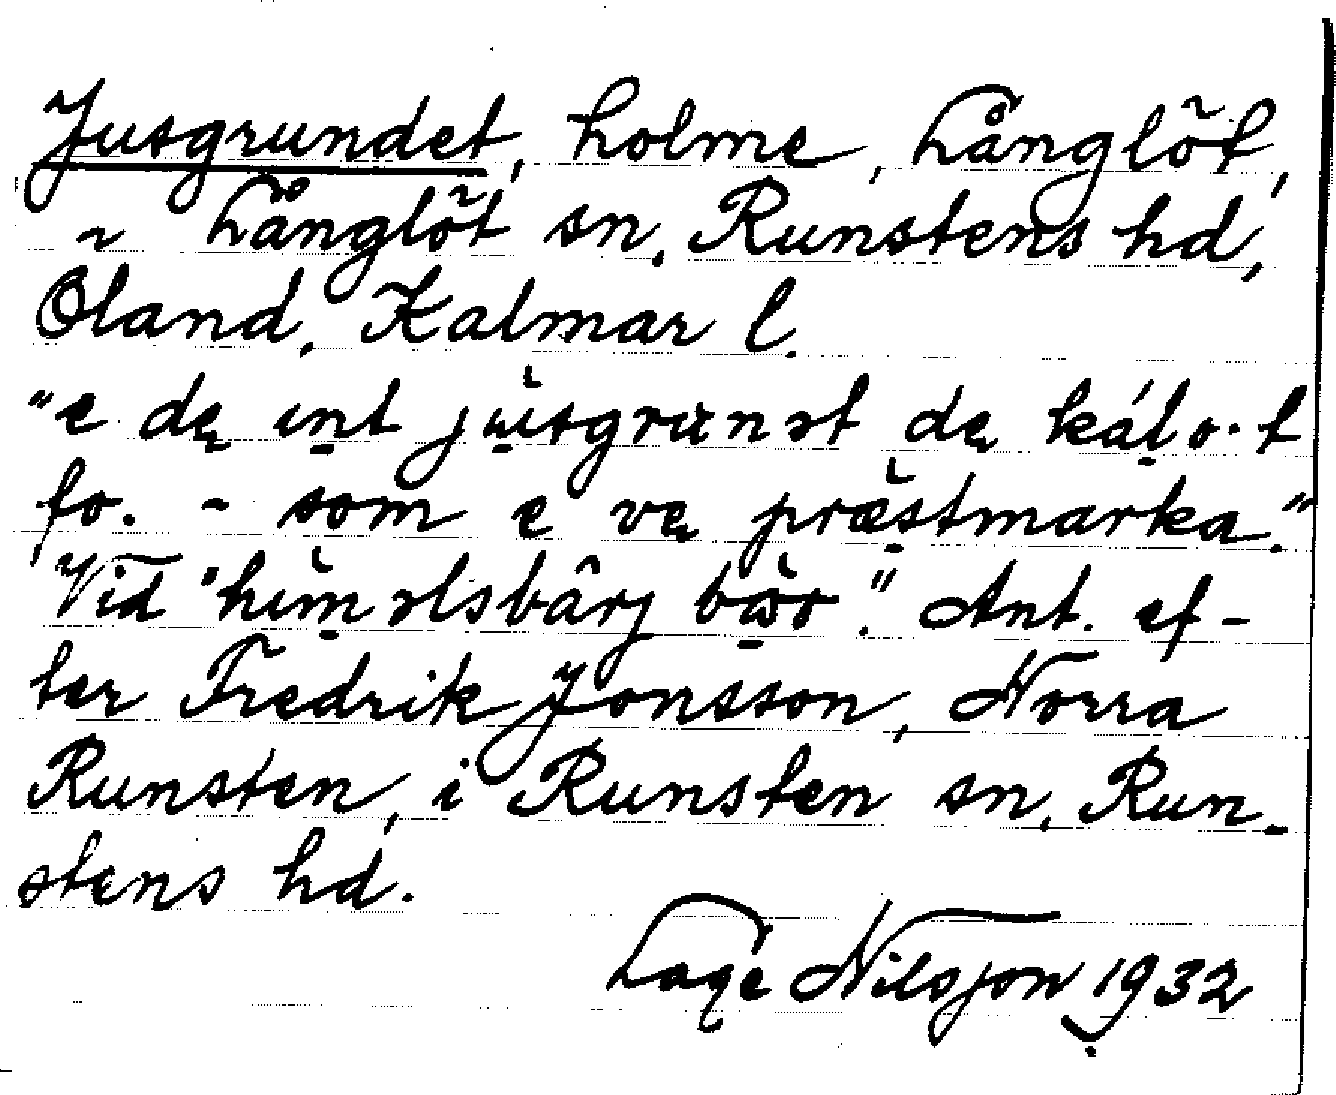 Jusgrundet, holme, Långlöt,
~ Långlöt sn, Runstens hd,
Öland, Kalmar l.
"e dę int jùsgrunət dę kálo·t
fo. - som e vę præ̀stmarka."
Vid "hìməlsbârj bær." Ant. ef-
ter Fredrik Jonsson, Norra
Runsten, i Runsten sn, Run-
stens hd.
Lage Nilsson 1932